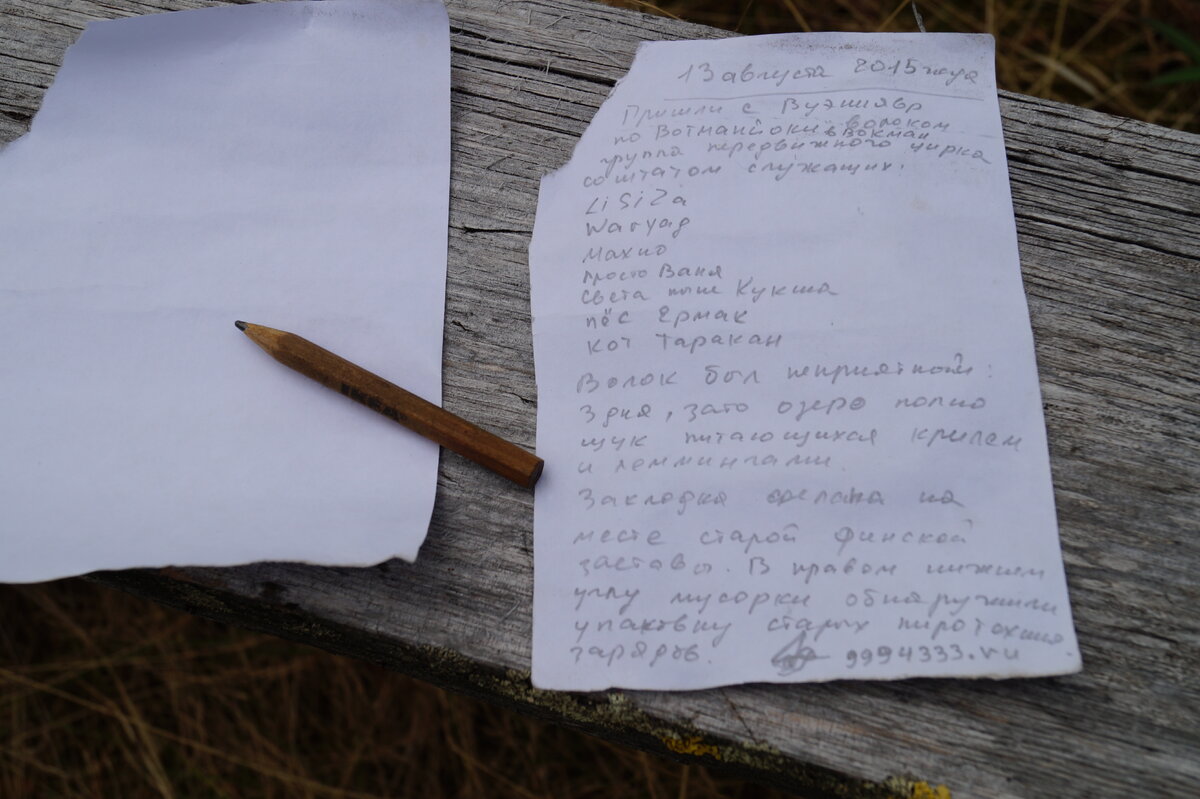 13 августа 2015 года
Пришли с Вуэниявр
по Вотманйоки волоком
в Вокман
группа передвижного цирка
со штатом служащих.
LiSiZa
Waryag
Махно
просто Ваня
Света ныне Кукша
пёс Ермак
кот Таракан
Волок был неприятной:
3 дня, зато озеро полно
щук питающихся крилем
и леммингами.
Закладка сделана на
месте старой финской
заставы. В правом нижнем
углу мусорки обнаружили
упаковку старых пиротехнич
зарядов. 9994333.ru
IKEA